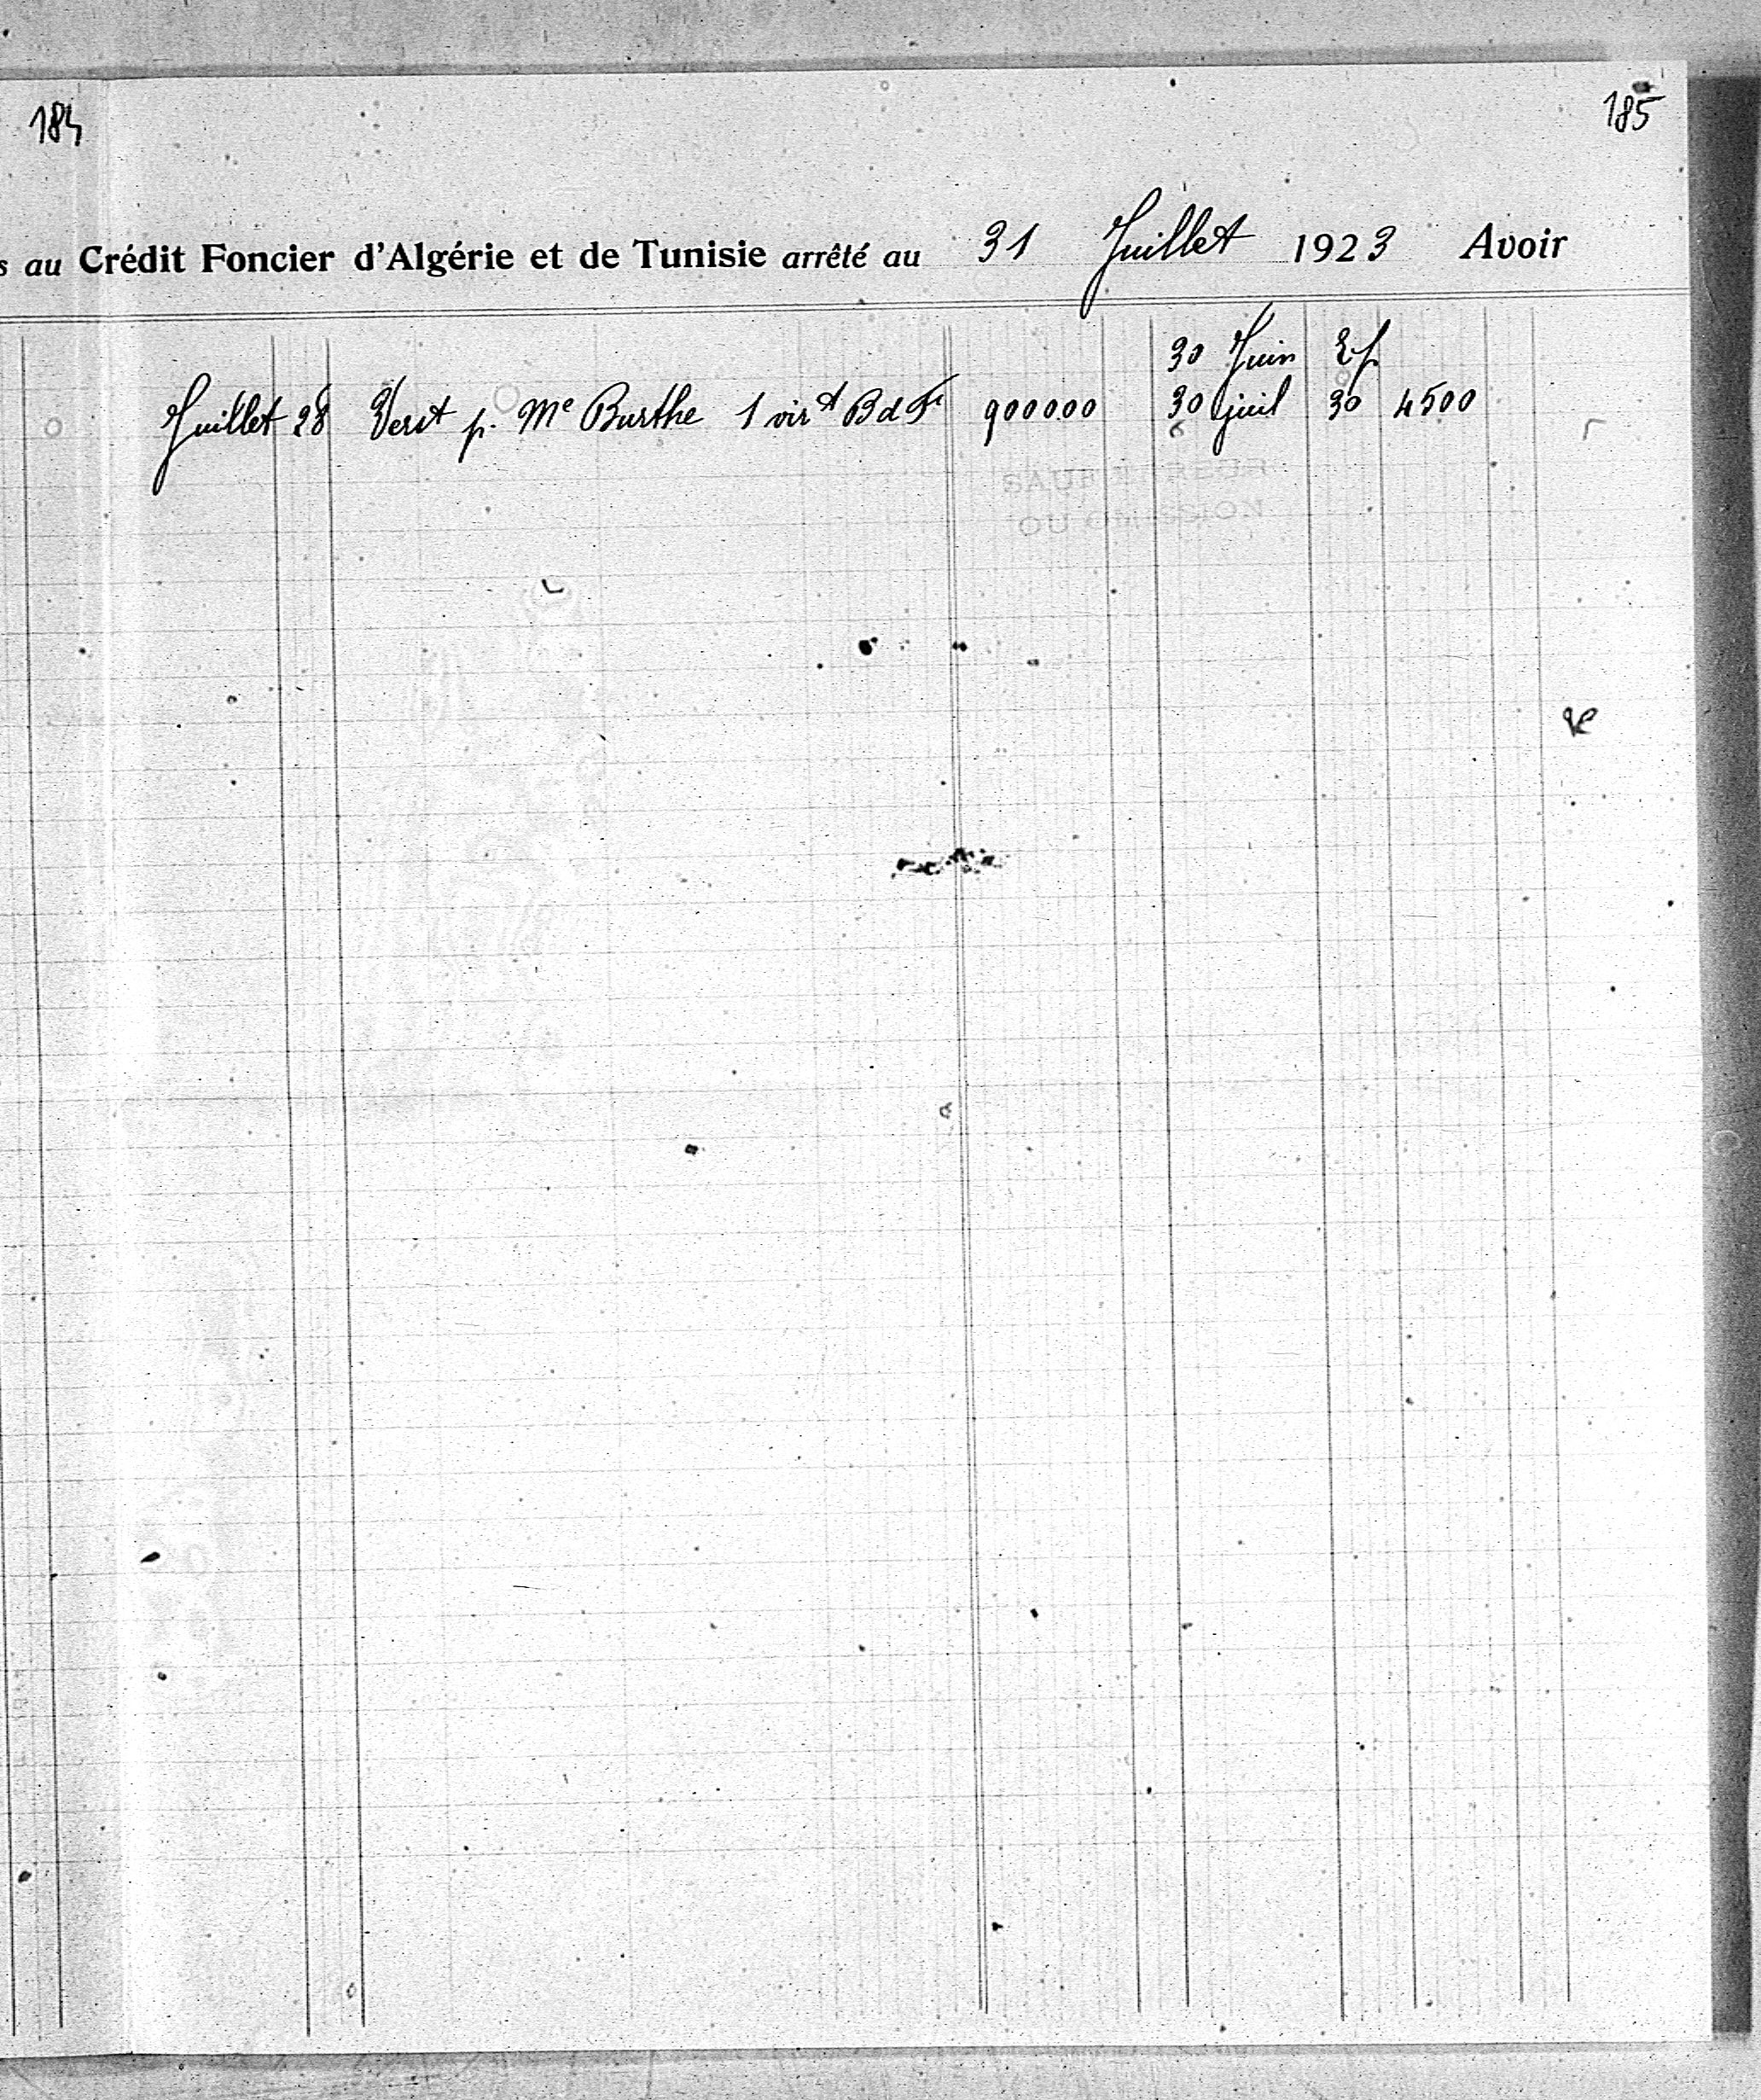 184
185
s au Crédit Foncier d'Algérie et de Tunisie arrêté au 31 Juillet 1923 Avoir
30 Juin Ep
Juillet 28 Verst p. Me Burthe 1 virt B d Fce 900000 30 juil 30 4500
SAUF ERREUR
OU OMISSION